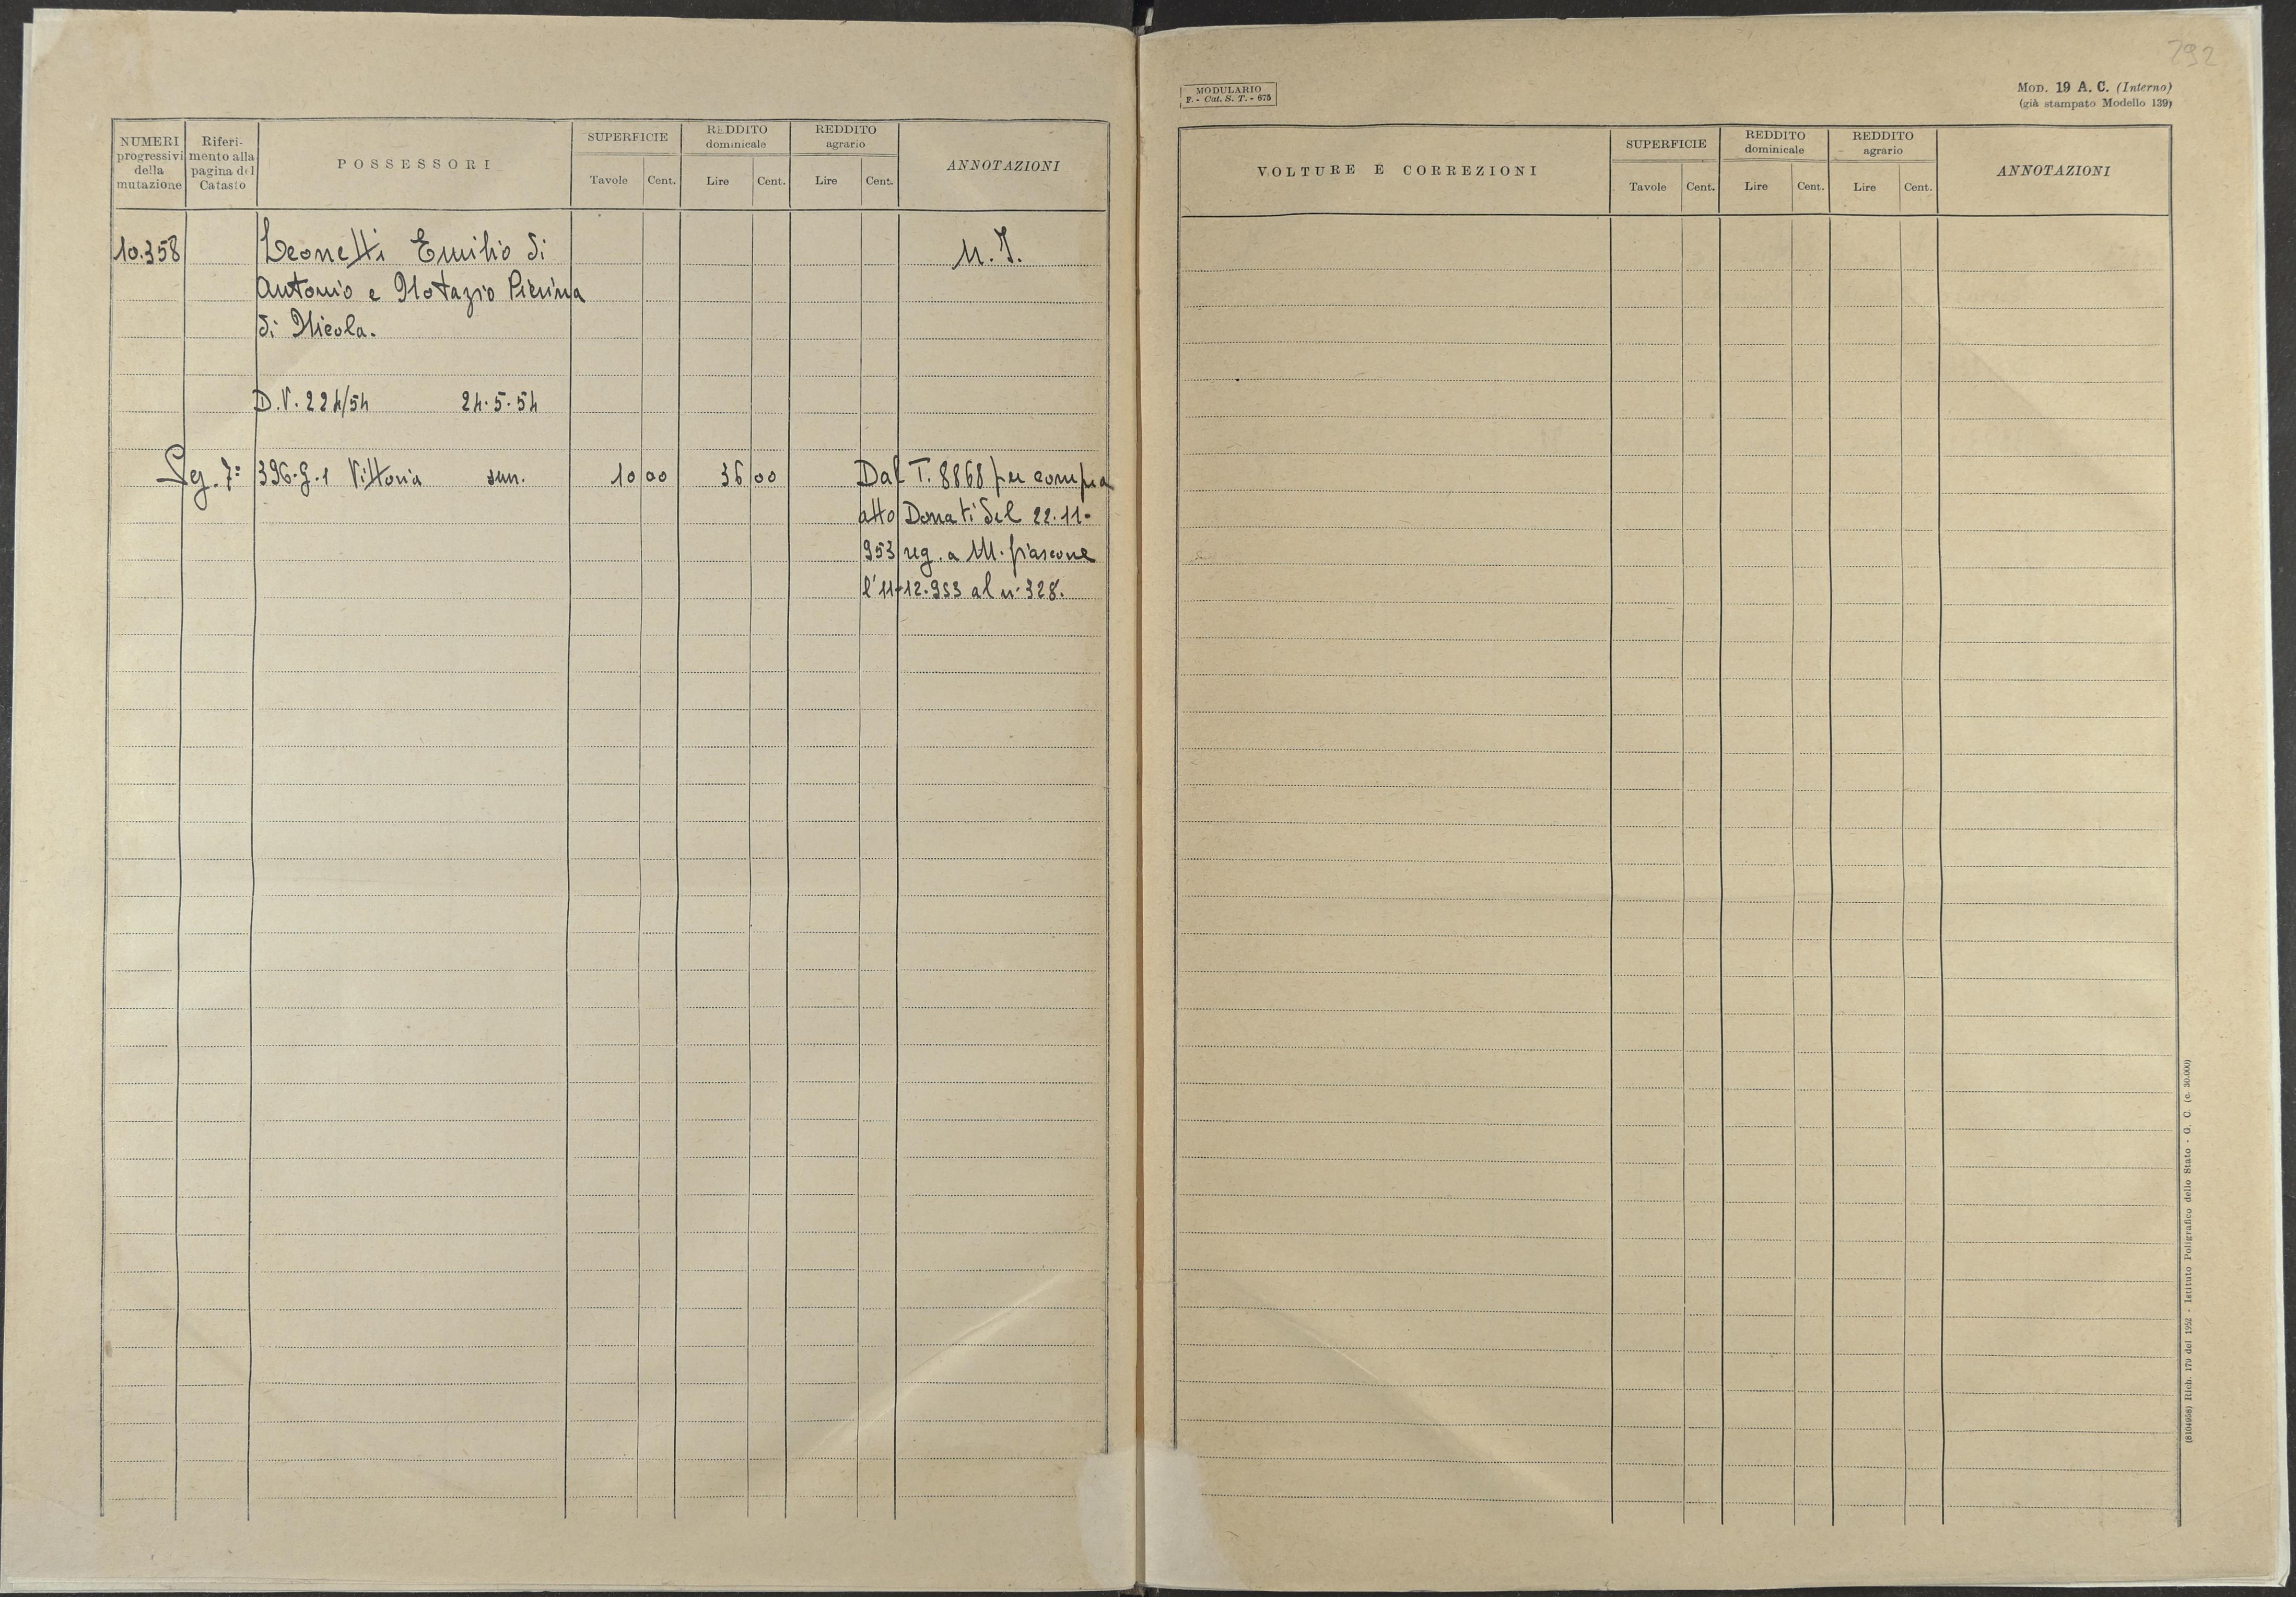 NUMERI
progressivi
della
mutazione
Riferi-
mento alla
pagina del
Catasto
POSSESSORI
SUPERFICIE
Tavole Cent.
REDDITO
dominicale
Lire Cent.
REDDITO
agrario
Lire Cent.
ANNOTAZIONI
10.358 Leonetti Emilio di
Antonio e Notazio Pierina
di Nicola.
N.I.
D.V. 224/54 24.5.54
Seg. 7ª 396.g.1 Vittoria sem. 10 00 36 00 Dal T. 8868 per compra
atto Donati del 22.11.
953 reg. a M.fiascone
l'11-12.953 al n. 328.
792
MODULARIO
F. - Cat. S. T. - 675
MOD. 19 A. C. (Interno)
(già stampato Modello 139)
VOLTURE E CORREZIONI
SUPERFICIE
Tavole Cent.
REDDITO
dominicale
Lire Cent.
REDDITO
agrario
Lire Cent.
ANNOTAZIONI
(8104958) Rich. 179 del 1952 - Istituto Poligrafico dello Stato - G. C. (c. 30.000)